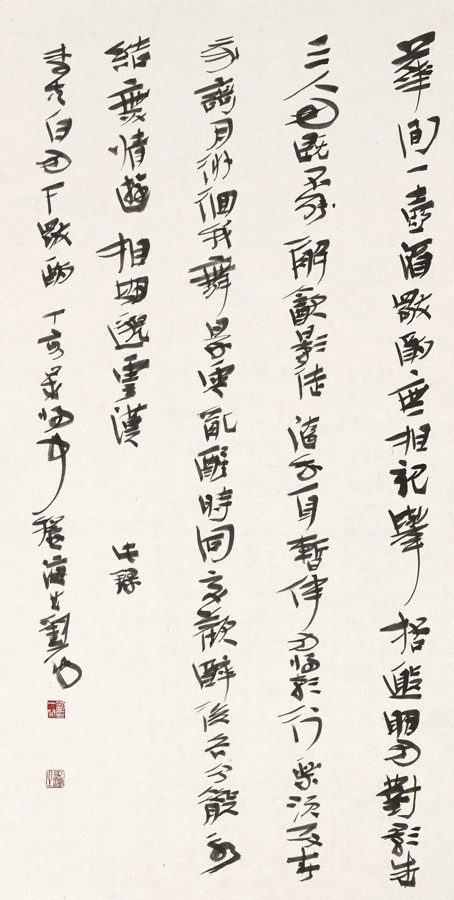 華間一壺酒獨酌無相親舉桮邀朙月對影成
三人月既不解飲影徒隨我身暫伴月將影行樂須及春
我謌月徘徊我舞景零亂醒時同交歡醉後各分散永
結無情遊相期邈雲漢
李太白月下獨酌 丁亥